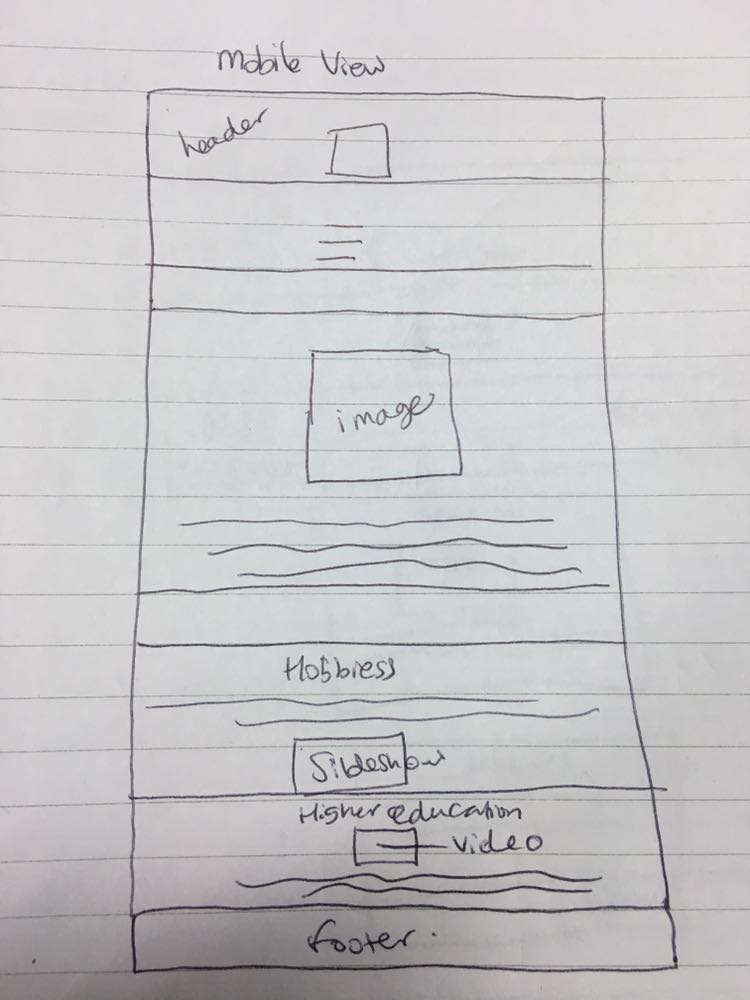 Mobile View
header
image
Hobbiess
Slideshow
Higher education
video
footer.